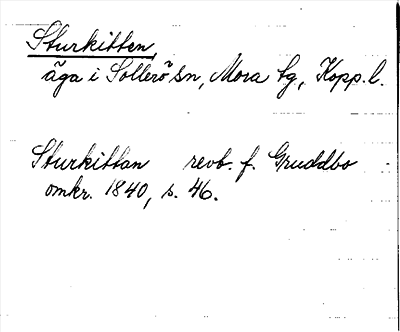 Sturkitten,
äga i Sollerö sn, Mora tg, Kopp. l.
Sturkittan revb. f. Gruddbo
omkr. 1840, s. 46.